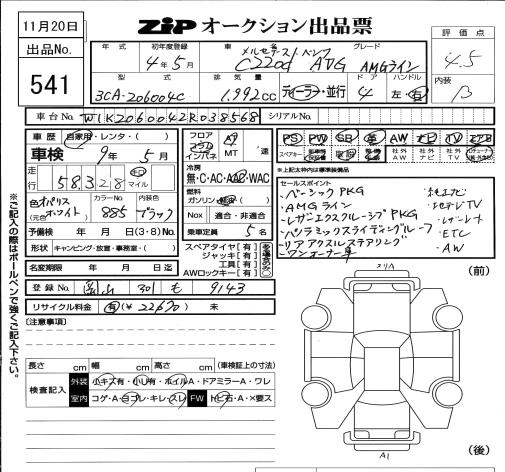 11月20日
ZIP オークション出品票
評価点
4.5
内装
B
出品No.
541
年式 初年度登録 車名 グレード
4年5月 メルセデスベンツ C220d AVG AMGライン
型式 排気量 ドア ハンドル
3CA-206004C 1,992CC ディーラー・並行 4 左・右
車台No. W1K2060042R038568 シリアルNo.
車歴 自家用・レンタ・( )
車検 9年5月
走行 58,328 キロ マイル
外装色(元色) オパリスホワイト カラーNo. 885 内装色 ブラック
予備検 年 月 日(3・8)No.
形状 キャンピング・放置・事務室・( )
名変期限 年 月 日迄
フロア コラム インパネ AT MT /速
冷房 無・C・AC・AAC・WAC
燃料 ガソリン・軽油・( )
Nox 適合・非適合
乗車定員 5名
スペアタイヤ[有]
ジャッキ[有]
工具[有]
AWロックキー[有]
PS PW SR 革 AW ナビ TV エアB
スペアキー 社外AW 社外ナビ 社外TV
※上記太枠内は標準装備品
セールスポイント
・ベーシックPKG
・AMGライン
・レザーエクスクルーシブPKG
・パノラミックスライディングルーフ
・リアアクスルステアリング
・ワンオーナー車
・純正ナビ
・地デジTV
・レーダーセーフティ
・ETC
・AW
登録No. 301 も 9143
リサイクル料金 有(¥22,630) 未
(注意事項)
長さ cm 幅 cm 高さ cm (車検証上の寸法)
検査記入 外装 小キズ有・小凹有・ホイルA・ドアミラーA・ワレ
室内 コゲ・A・ヨゴレ・キレ・スレ FW トビ石・A・×要ス
※ご記入の際はボールペンで強くご記入下さい。
(前)
リリA
A1
(後)